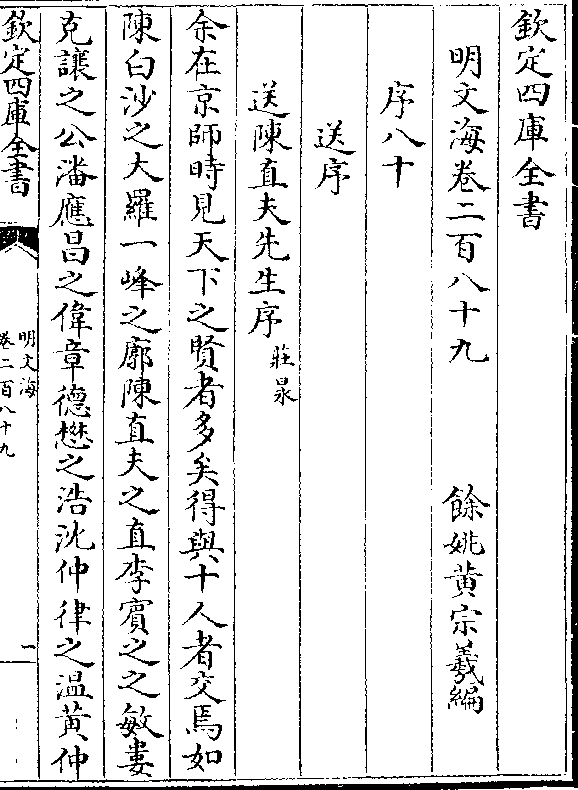 欽定四庫全書
明文海卷二百八十九　　餘姚黄宗羲編
序八十
送序
送陳直夫先生序 莊㫤
余在京師時見天下之賢者多矣得與十人者交焉如
陳白沙之大羅一峰之廓陳直夫之直李賔之之敏婁
克讓之公潘應昌之偉章德懋之浩沈仲律之温黄仲
欽定四庫全書
明文海
卷二百八十九
一